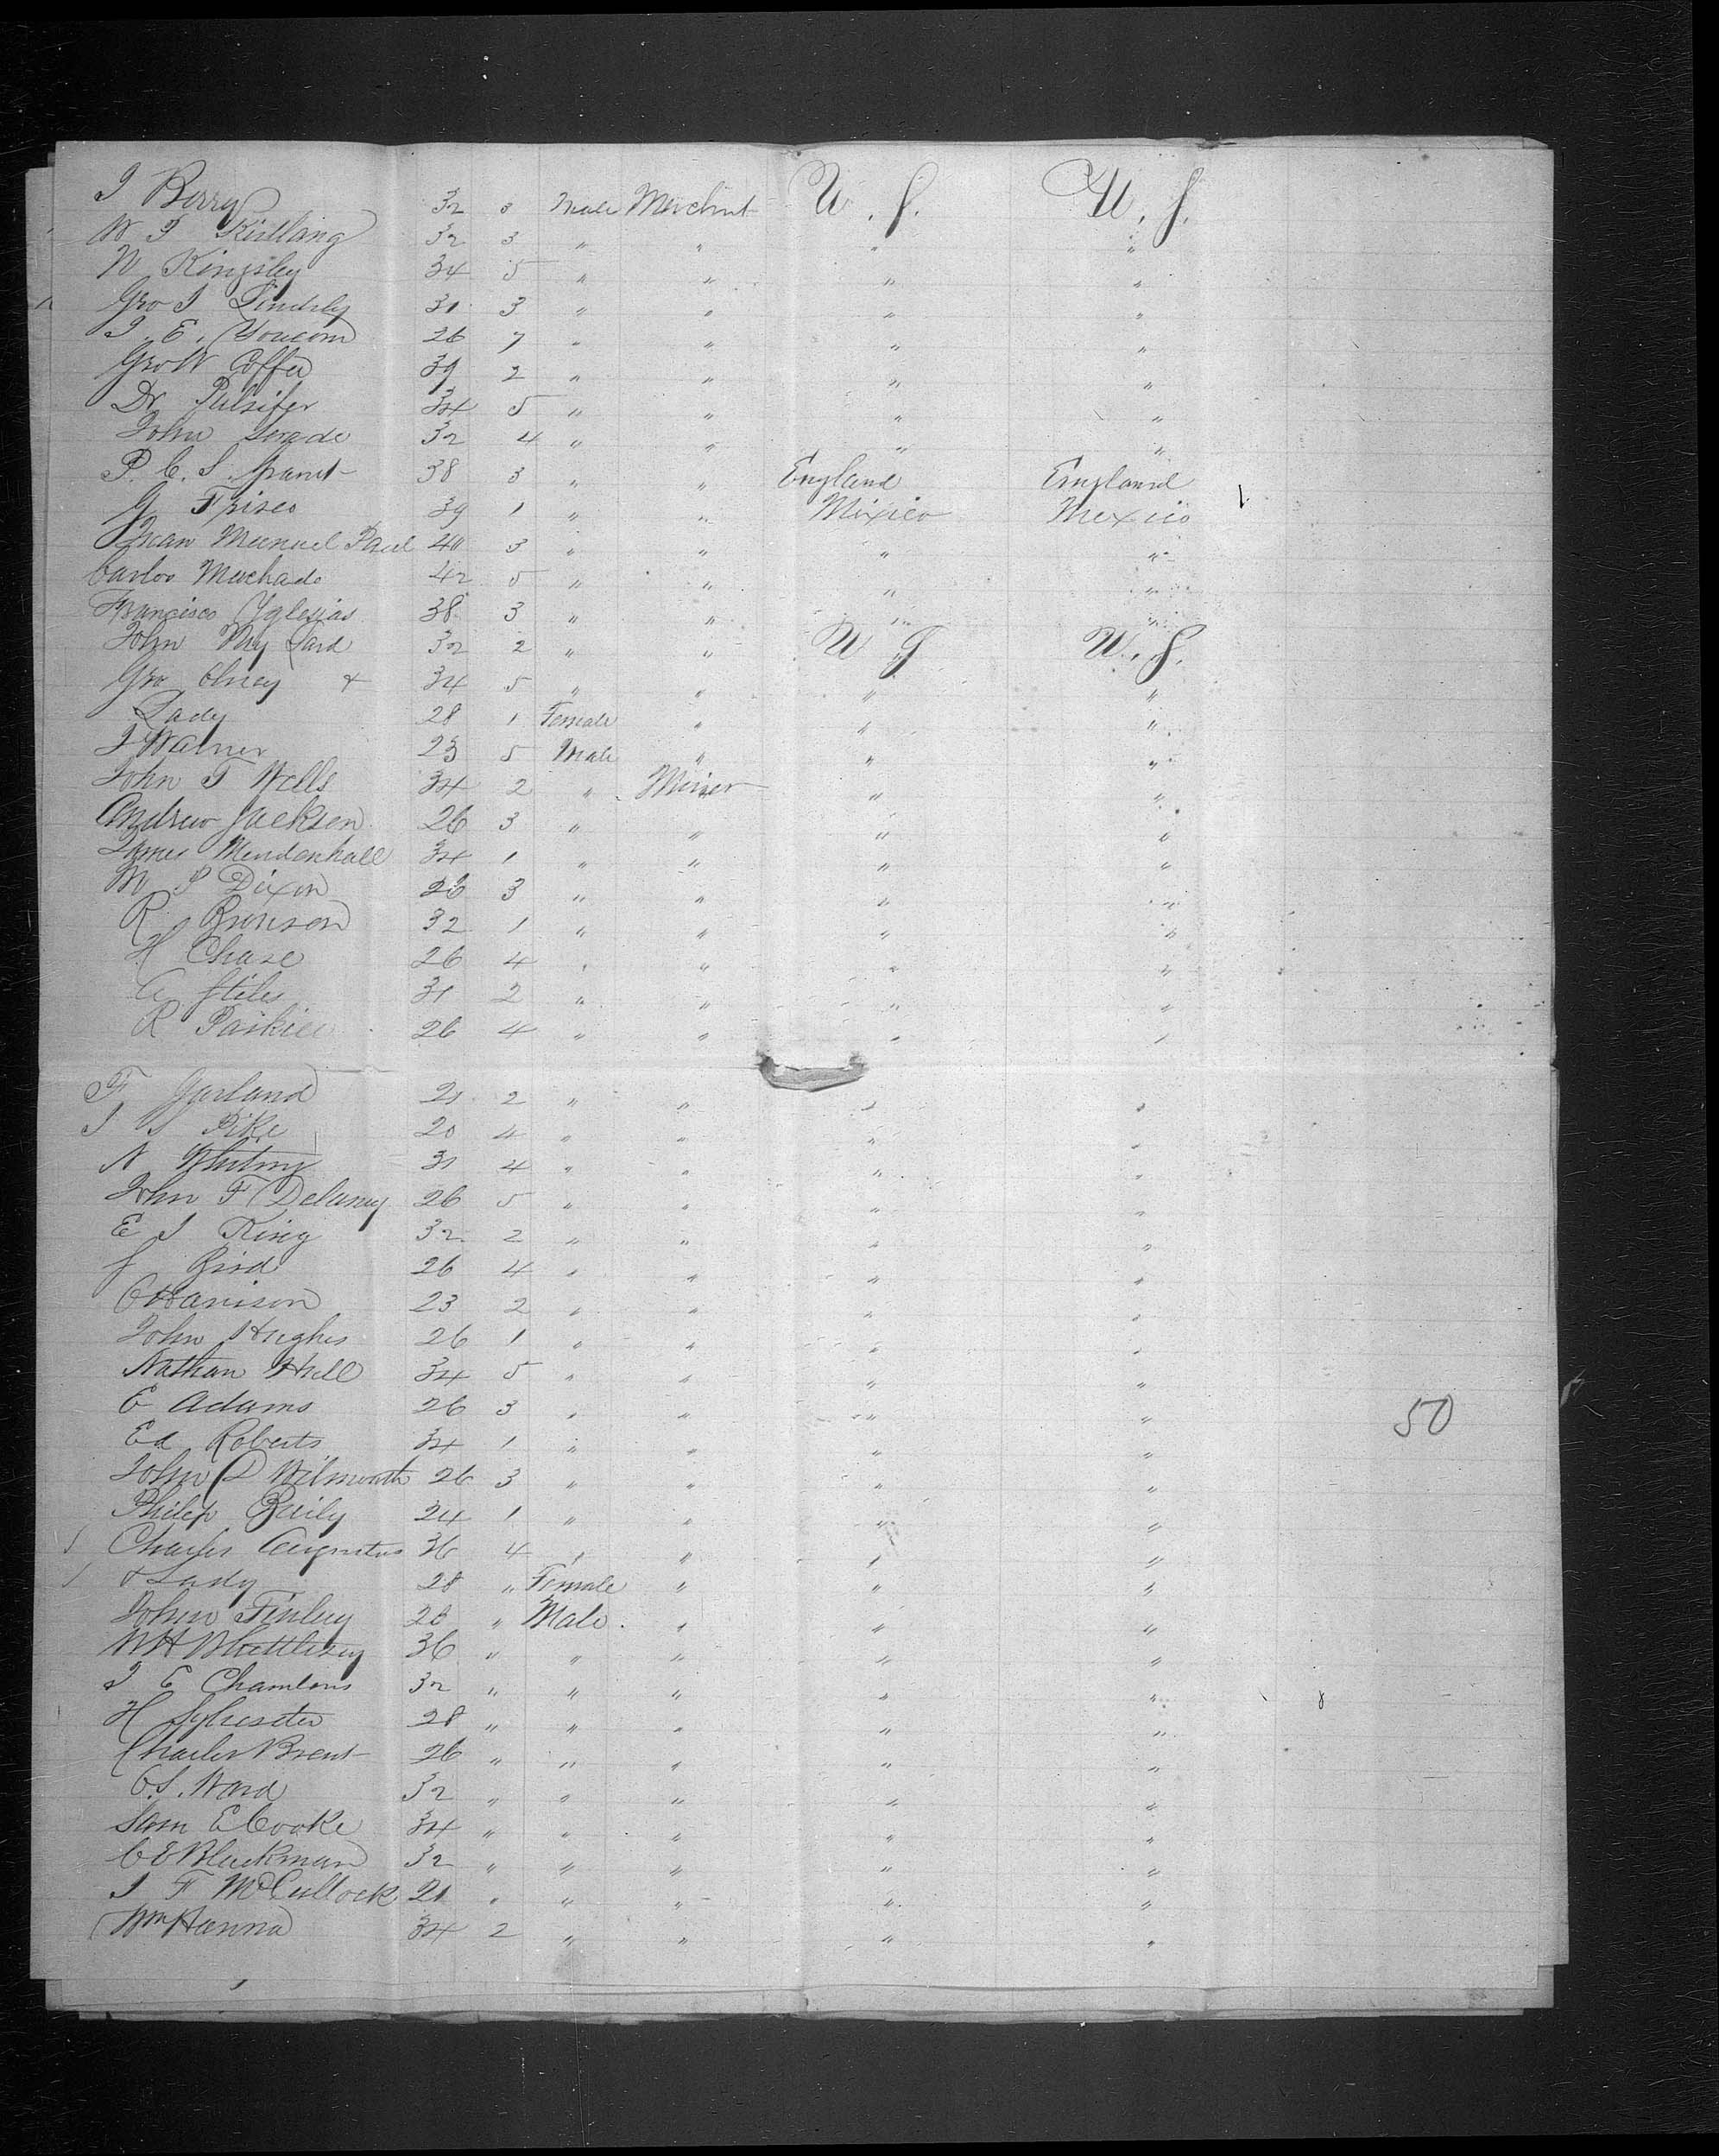 J Berry 32 8 Male Merchnt U.S. U.S.
W J 32 3 " " " "
W Kingsley 34 5 " " " "
Geo J Lindsly 31 3 " " " "
J. E. Youcom 26 7 " " " "
Geo W Coffee 39 2 " " " "
Dr Pulsifer 34 5 " " " "
John 32 4 " " " "
P. C. S. Grant 38 3 " " England England
G Frisco 39 1 " " Mexico Mexico
Juan Manuel Paul 40 3 " " " "
Carlos Machado 42 5 " " " "
Francisco Yglesias 38 3 " " " "
John 32 2 " " U S U.S.
Geo Olney & 34 5 " " " "
Lady 28 1 Female " " "
J Warner 23 5 Male " " "
John T Wells 34 2 " Miner " "
Andrew Jackson 26 3 " " " "
James Mendenhall 34 1 " " " "
M S Dixon 26 3 " " " "
R Bronson 32 1 " " " "
H Chase 26 4 " " " "
A Stiles 31 2 " " " "
R 26 4 " " " "
F Garland 21 2 " " " "
J S Pike 20 4 " " " "
N Whitny 31 4 " " " "
John F Delaney 26 5 " " " "
E J King 32 2 " " " "
J Bird 26 4 " " " "
C Harrison 23 2 " " " "
John Hughes 26 1 " " " "
Nathan Hill 34 5 " " " "
E Adams 26 3 " " " "
50
Ed Roberts 34 1 " " " "
John D Wilmouth 26 3 " " " "
Philip Baily 24 1 " " " "
Charles Augustus 36 4 " " " "
& Lady 28 " Female " " "
John Finley 28 " Male " " "
W H Whittlesey 36 " " " " "
J E 32 " " " " "
H Sylvester 28 " " " " "
Charles Brent 26 " " " " "
C. S. Ward 32 " " " " "
Sam E Cooke 34 " " " " "
C E Blackman 32 " " " " "
J F McCullock 21 " " " " "
Wm Hanna 34 2 " " " "